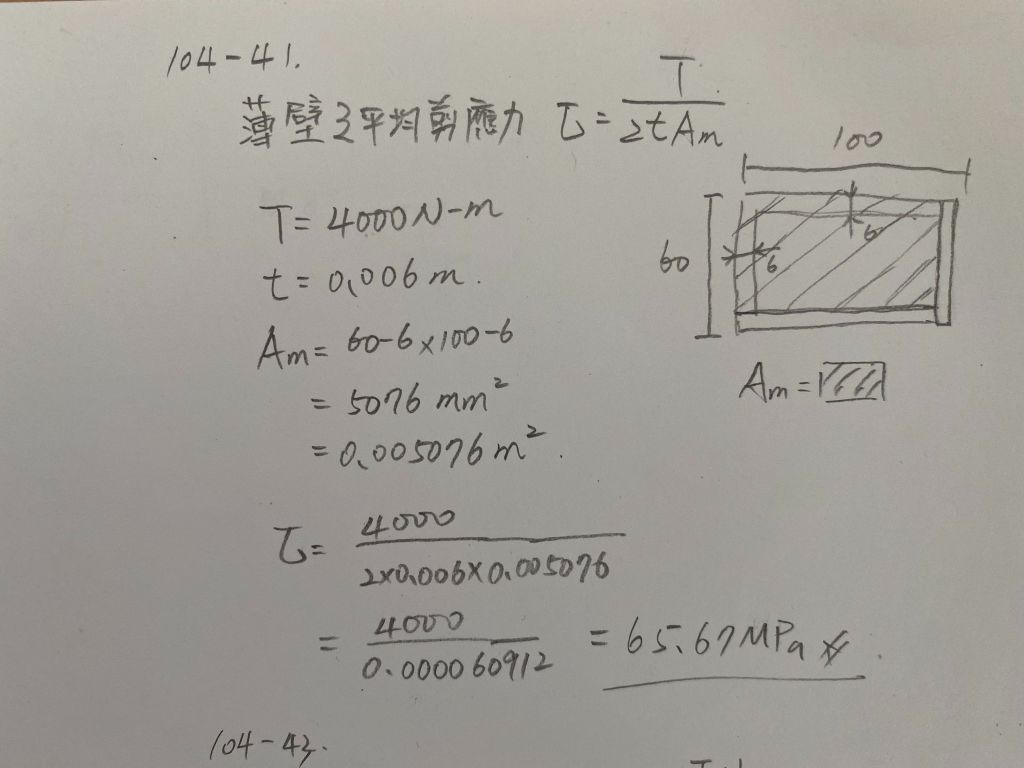 104-41.
薄壁之平均剪應力 τ = T / 2tAm
100
60
6
6
T = 4000 N-m
t = 0.006 m.
Am = 60-6 × 100-6
= 5076 mm²
= 0.005076 m².
Am =
τ = 4000 / 2×0.006×0.005076
= 4000 / 0.000060912 = 65.67 MPa
104-43.